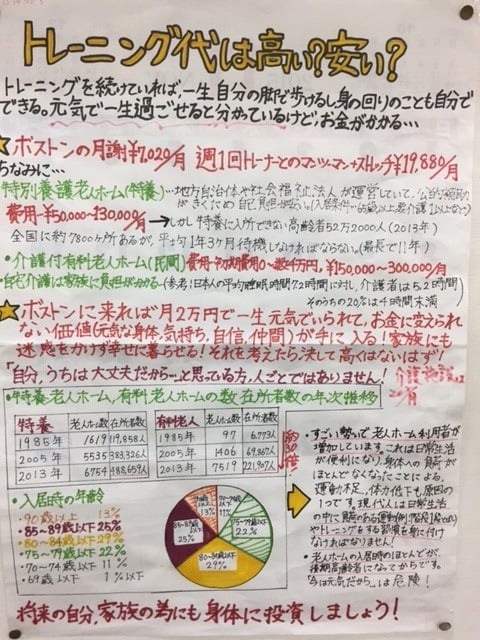 トレーニング代は高い?安い?
トレーニングを続けていれば、一生自分の脚で歩けるし身の回りのことも自分で
できる。元気で一生過ごせると分かっているけど、お金がかかる…
★ボストンの月謝¥7,020/月 週1回トレーナーとのマンツーマン+ストレッチ¥19,880/月
ちなみに…
特別養護老人ホーム(特養)…地方自治体や社会福祉法人が運営していて、公的な補助
がきくため自宅負担が
費用→¥50,000~130,000/月 →しかし特養に入所できない高齢者52万2000人(2013年)
全国に約7800ヶ所あるが、平均1年3ヶ月待機しなければならない。(最長で11年)
・介護付有料老人ホーム(民間) 費用→初期費用0~数千万円、¥150,000~300,000/月
・自宅介護は家族に負担がかかる (参考:日本人の平均睡眠時間7.2時間に対し、介護者は5.2時間
そのうちの20%は4時間未満
★ボストンに来れば月2万円で一生元気でいられて、お金に変えられ
ない価値(元気な身体、気持ち、自信、仲間)が手に入る!家族にも
迷惑をかけず幸せに暮らせる!それを考えたら決して高くはないはず!
「自分、うちは大丈夫だから…」と思っている方、人ごとではありません!
・特養老人ホーム、有料老人ホームの数、在所者数の年次推移
特養 老人ホーム数 在所者数 有料老人 ホーム数 在所者数
1985年 1619 119,858人 1985年 97 6,773人
2005年 5535 383,326人 2005年 1406 69,867人
2013年 6754 488,659人 2013年 7519 221,907人
約30倍
・入居時の年齢
・90歳以上 13%
・85~89歳以下 25%
・80~84歳以下 29%
・75~79歳以下 22%
・70~74歳以下 11%
・69歳以下 1%以下
13%
11%
75~79歳以下
22%
80~84歳以下
29%
85~89歳以下
25%
・すごい勢いで老人ホーム利用者が
増加しています。これは日常生活
が便利になり、身体への負荷が
ほとんどなくなったことによる、
運動不足、体力低下も原因の
1つです。現代人は日常生活
の中に
やトレーニングをする習慣を身に付け
なければなりません!
・老人ホームの入居時のほとんどが、
後期高齢者になってからです。
「今は元気だから」は危険!
将来の自分、家族の為にも身体に投資しましょう!